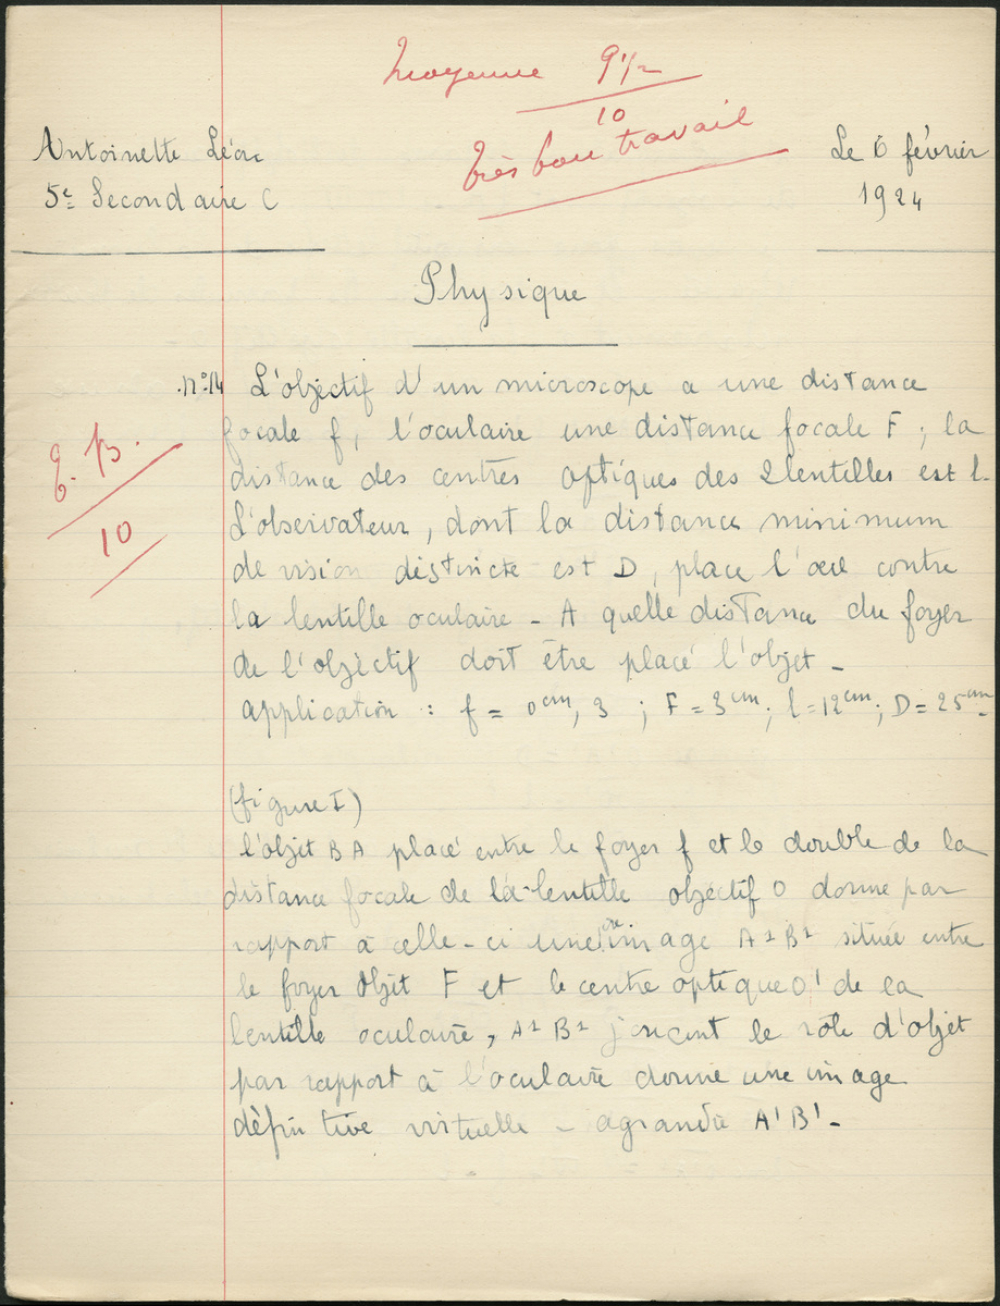 Moyenne 9 1/2
10
Très bon travail
Antoinette Léon
5e Secondaire C
Le 6 février
1924
Physique
n°14 L'objectif d'un microscope a une distance
focale f, l'oculaire une distance focale F ; la
distance des centres optiques des 2 lentilles est l.
L'observateur, dont la distance minimum
de vision distincte est D, place l'œil contre
la lentille oculaire - A quelle distance du foyer
de l'objectif doit être placé l'objet -
application : f = 0cm, 3 ; F = 3cm ; l = 12cm ; D = 25cm -
T. B.
10
(figure I)
l'objet BA placé entre le foyer f et le double de la
distance focale de la lentille objectif O donne par
rapport à celle-ci une 1ère image A1B1 située entre
le foyer objet F et le centre optique O' de la
lentille oculaire, A1 B1 jouant le rôle d'objet
par rapport à l'oculaire donne une image
définitive virtuelle - agrandie A'B' -